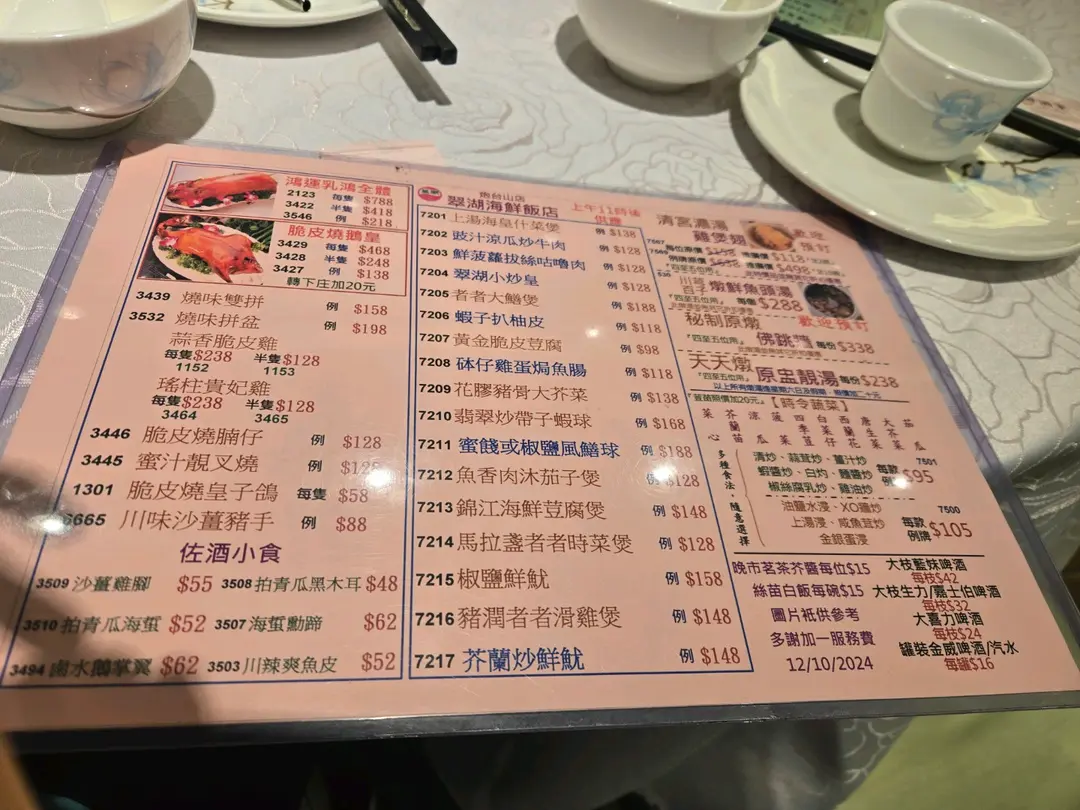 鴻運乳鴻全體
2123 每隻 $788
3422 半隻 $418
3546 例 $218
脆皮燒鵝皇
3429 每隻 $468
3428 半隻 $248
3427 例 $138
轉下庄加20元
3439 燒味雙拼 例 $158
3532 燒味拼盆 例 $198
蒜香脆皮雞
每隻$238 半隻$128
1152 1153
瑤柱貴妃雞
每隻$238 半隻$128
3464 3465
3446 脆皮燒腩仔 例 $128
3445 蜜汁靚叉燒 例 $128
1301 脆皮燒皇子鴿 每隻 $58
6665 川味沙薑豬手 例 $88
佐酒小食
3509 沙薑雞腳 $55 3508 拍青瓜黑木耳 $48
3510 拍青瓜海蜇 $52 3507 海蜇勳蹄 $62
3494 鹵水鵝掌翼 $62 3503 川辣爽魚皮 $52
炮台山店
翠湖海鮮飯店
上午11時後
供應
7201 上湯海皇什菜煲 例 $138
7202 豉汁涼瓜炒牛肉 例 $128
7203 鮮菠蘿拔絲咕嚕肉 例 $128
7204 翠湖小炒皇 例 $128
7205 者者大鱔煲 例 $188
7206 蝦子扒柚皮 例 $118
7207 黃金脆皮豆腐 例 $98
7208 砵仔雞蛋焗魚腸 例 $118
7209 花膠豬骨大芥菜 例 $138
7210 翡翠炒帶子蝦球 例 $168
7211 蜜餞或椒鹽風鱔球 例 $188
7212 魚香肉沐茄子煲 例 $128
7213 錦江海鮮荳腐煲 例 $148
7214 馬拉盞者者時菜煲 例 $128
7215 椒鹽鮮魷 例 $158
7216 豬潤者者滑雞煲 例 $148
7217 芥蘭炒鮮魷 例 $148
清宮濃湯
雞煲翅
歡迎
預訂
$118
$498
燉鮮魚頭湯
『四至五位用』 每個 $288
秘制原燉 歡迎預訂
『四至五位用』 佛跳牆 每份 $338
天天燉
『四至五位用』 原盅靚湯 每份 $238
【時令蔬菜】
多種食法，隨意選擇
清炒·蒜茸炒·薑汁炒
蝦醬炒·白灼·麵醬炒
椒絲腐乳炒·雞油炒
7501
每款
$95
油鹽水浸·XO醬炒
上湯浸·咸魚茸炒
金銀蛋浸
7500
每款
例牌 $105
晚市茗茶芥醬每位$15
絲苗白飯每碗$15
圖片祇供參考
多謝加一服務費
12/10/2024
大枝藍妹啤酒
每枝$42
大枝生力/嘉士伯啤酒
每枝$32
大喜力啤酒
每枝$24
罐裝金威啤酒/汽水
每罐$16